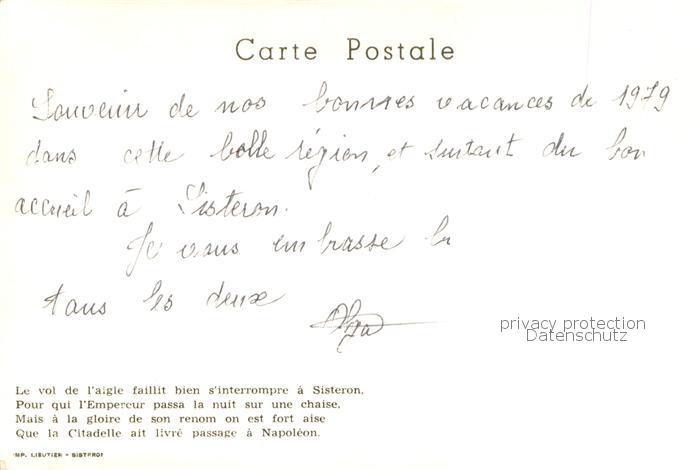 Carte Postale
Souvenir de nos bonnes vacances de 1979
dans cette belle région, et surtout du bon
accueil à Sisteron.
Je vous embrasse
tous les deux
Olga
privacy protection
Datenschutz
Le vol de l'aigle faillit bien s'interrompre à Sisteron.
Pour qui l'Empereur passa la nuit sur une chaise,
Mais à la gloire de son renom on est fort aise
Que la Citadelle ait livré passage à Napoléon.
IMP. LIEUTIER - SISTERON